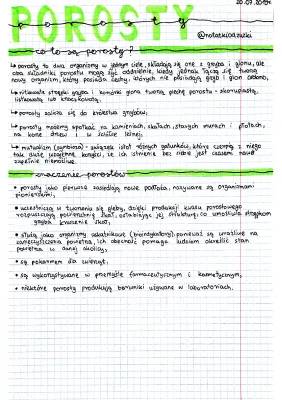 20.09.2021r
POROSTY
porosty
@notatkiodzuzki
co to są porosty?
↳ porosty to dwa organizmy w jednym ciele, składają się one z grzyba i glonu, ale
oba składniki porostu mogą żyć oddzielnie, kiedy jednak łączą się tworzą
nowy organizm, który posiada cechy, których nie posiadają grzyb i glon osobno,
↳ strzępki grzyba i komórki glonu tworzą plechę porostu - skorupiastą,
listkowatą lub krzaczkowatą,
↳ porosty zalicza się do królestwa grzybów,
↳ porosty możemy spotkać na kamieniach, skałach, starych murach i płotach,
na korze drzew i w ściółce leśnej,
↳ mutualizm (symbioza) - związek istot różnych gatunków, które czerpią z niego
tak duże wzajemne korzyści, że ich istnienie bez siebie jest czasem nawet
zupełnie niemożliwe.
znaczenie porostów
• porosty jako pierwsze zasiedlają nowe podłoża, nazywane są organizmami
pionierskimi,
• uczestniczą w tworzeniu się gleby, dzięki produkcji kwasu porostowego
rozpuszczają powierzchnię skał, osłabiając jej strukturę, co umożliwia strzępkom
grzyba kruszenie skał,
• służą jako organizmy wskaźnikowe (bioindykatory), ponieważ są wrażliwe na
zanieczyszczenia powietrza, ich obecność pomaga ludziom określić stan
powietrza w danej okolicy,
• są pokarmem dla zwierząt,
• są wykorzystywane w przemyśle farmaceutycznym i kosmetycznym,
• niektóre porosty produkują barwniki używane w laboratoriach.